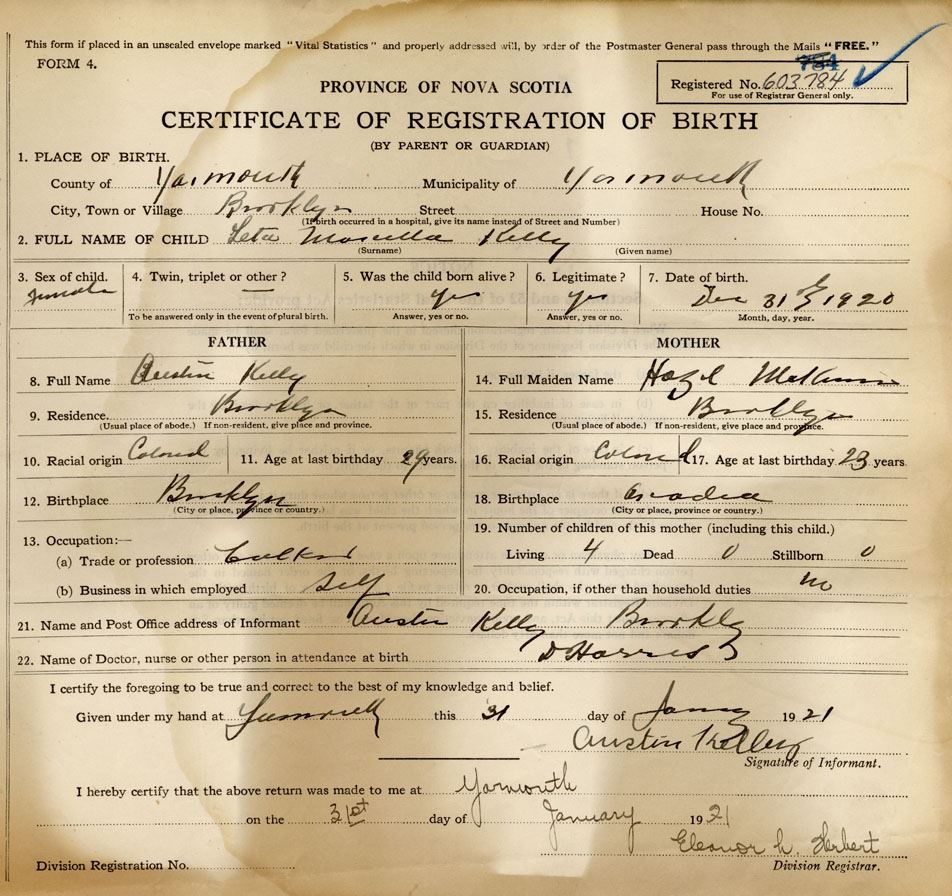 This form if placed in an unsealed envelope marked "Vital Statistics" and properly addressed will, by order of the Postmaster General pass through the Mails "FREE."
FORM 4.
784
Registered No. 603784
For use of Registrar General only.
PROVINCE OF NOVA SCOTIA
CERTIFICATE OF REGISTRATION OF BIRTH
(BY PARENT OR GUARDIAN)
1. PLACE OF BIRTH.
County of Yarmouth Municipality of Yarmouth
City, Town or Village Brooklyn Street House No.
(If birth occurred in a hospital, give its name instead of Street and Number)
2. FULL NAME OF CHILD Leta Kelly
(Surname) (Given name)
3. Sex of child. 4. Twin, triplet or other? — 5. Was the child born alive? 6. Legitimate? 7. Date of birth.
female yes yes Dec 31 1920
To be answered only in the event of plural birth. Answer, yes or no. Answer, yes or no. Month, day, year.
FATHER MOTHER
8. Full Name Austin Kelly 14. Full Maiden Name Hazel
9. Residence. Brooklyn 15. Residence Brooklyn
(Usual place of abode.) If non-resident, give place and province. (Usual place of abode.) If non-resident, give place and province.
10. Racial origin Colored 11. Age at last birthday 29 years. 16. Racial origin Colored 17. Age at last birthday 23 years.
12. Birthplace Brooklyn 18. Birthplace Arcadia
(City or place, province or country.) (City or place, province or country.)
19. Number of children of this mother (including this child.)
13. Occupation:—
(a) Trade or profession Living 4 Dead 0 Stillborn 0
(b) Business in which employed Self 20. Occupation, if other than household duties no
21. Name and Post Office address of Informant Austin Kelly Brookly
22. Name of Doctor, nurse or other person in attendance at birth D Harris
I certify the foregoing to be true and correct to the best of my knowledge and belief.
Given under my hand at Yarmouth this 31 day of Jany 1921
Austin Kelley
Signature of Informant.
I hereby certify that the above return was made to me at Yarmouth
on the 31st day of January 1921
Eleanor h. Herbert
Division Registration No. Division Registrar.